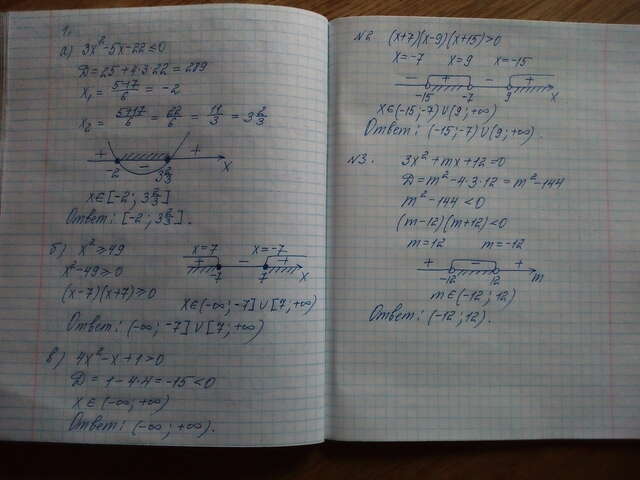 1.
а) 3x²-5x-22≤0
D=25+4·3·22=289
x₁=(5-17)/6=-2
x₂=(5+17)/6=22/6=11/3=3 2/3
+ - + -2 3 2/3 x
x∈[-2; 3 2/3]
Ответ: [-2; 3 2/3].
б) x²≥49
x²-49≥0
(x-7)(x+7)≥0
x=7 x=-7
+ - + -7 7 x
x∈(-∞; -7]∪[7; +∞)
Ответ: (-∞; -7]∪[7; +∞)
в) 4x²-x+1>0
D=1-4·4=-15<0
x∈(-∞; +∞)
Ответ: (-∞; +∞).
№2. (x+7)(x-9)(x+15)>0
x=-7 x=9 x=-15
- + - + -15 -7 9 x
x∈(-15; -7)∪(9; +∞)
Ответ: (-15; -7)∪(9; +∞).
№3. 3x²+mx+12=0
D=m²-4·3·12=m²-144
m²-144<0
(m-12)(m+12)<0
m=12 m=-12
+ - + -12 12 m
m∈(-12; 12)
Ответ: (-12; 12).